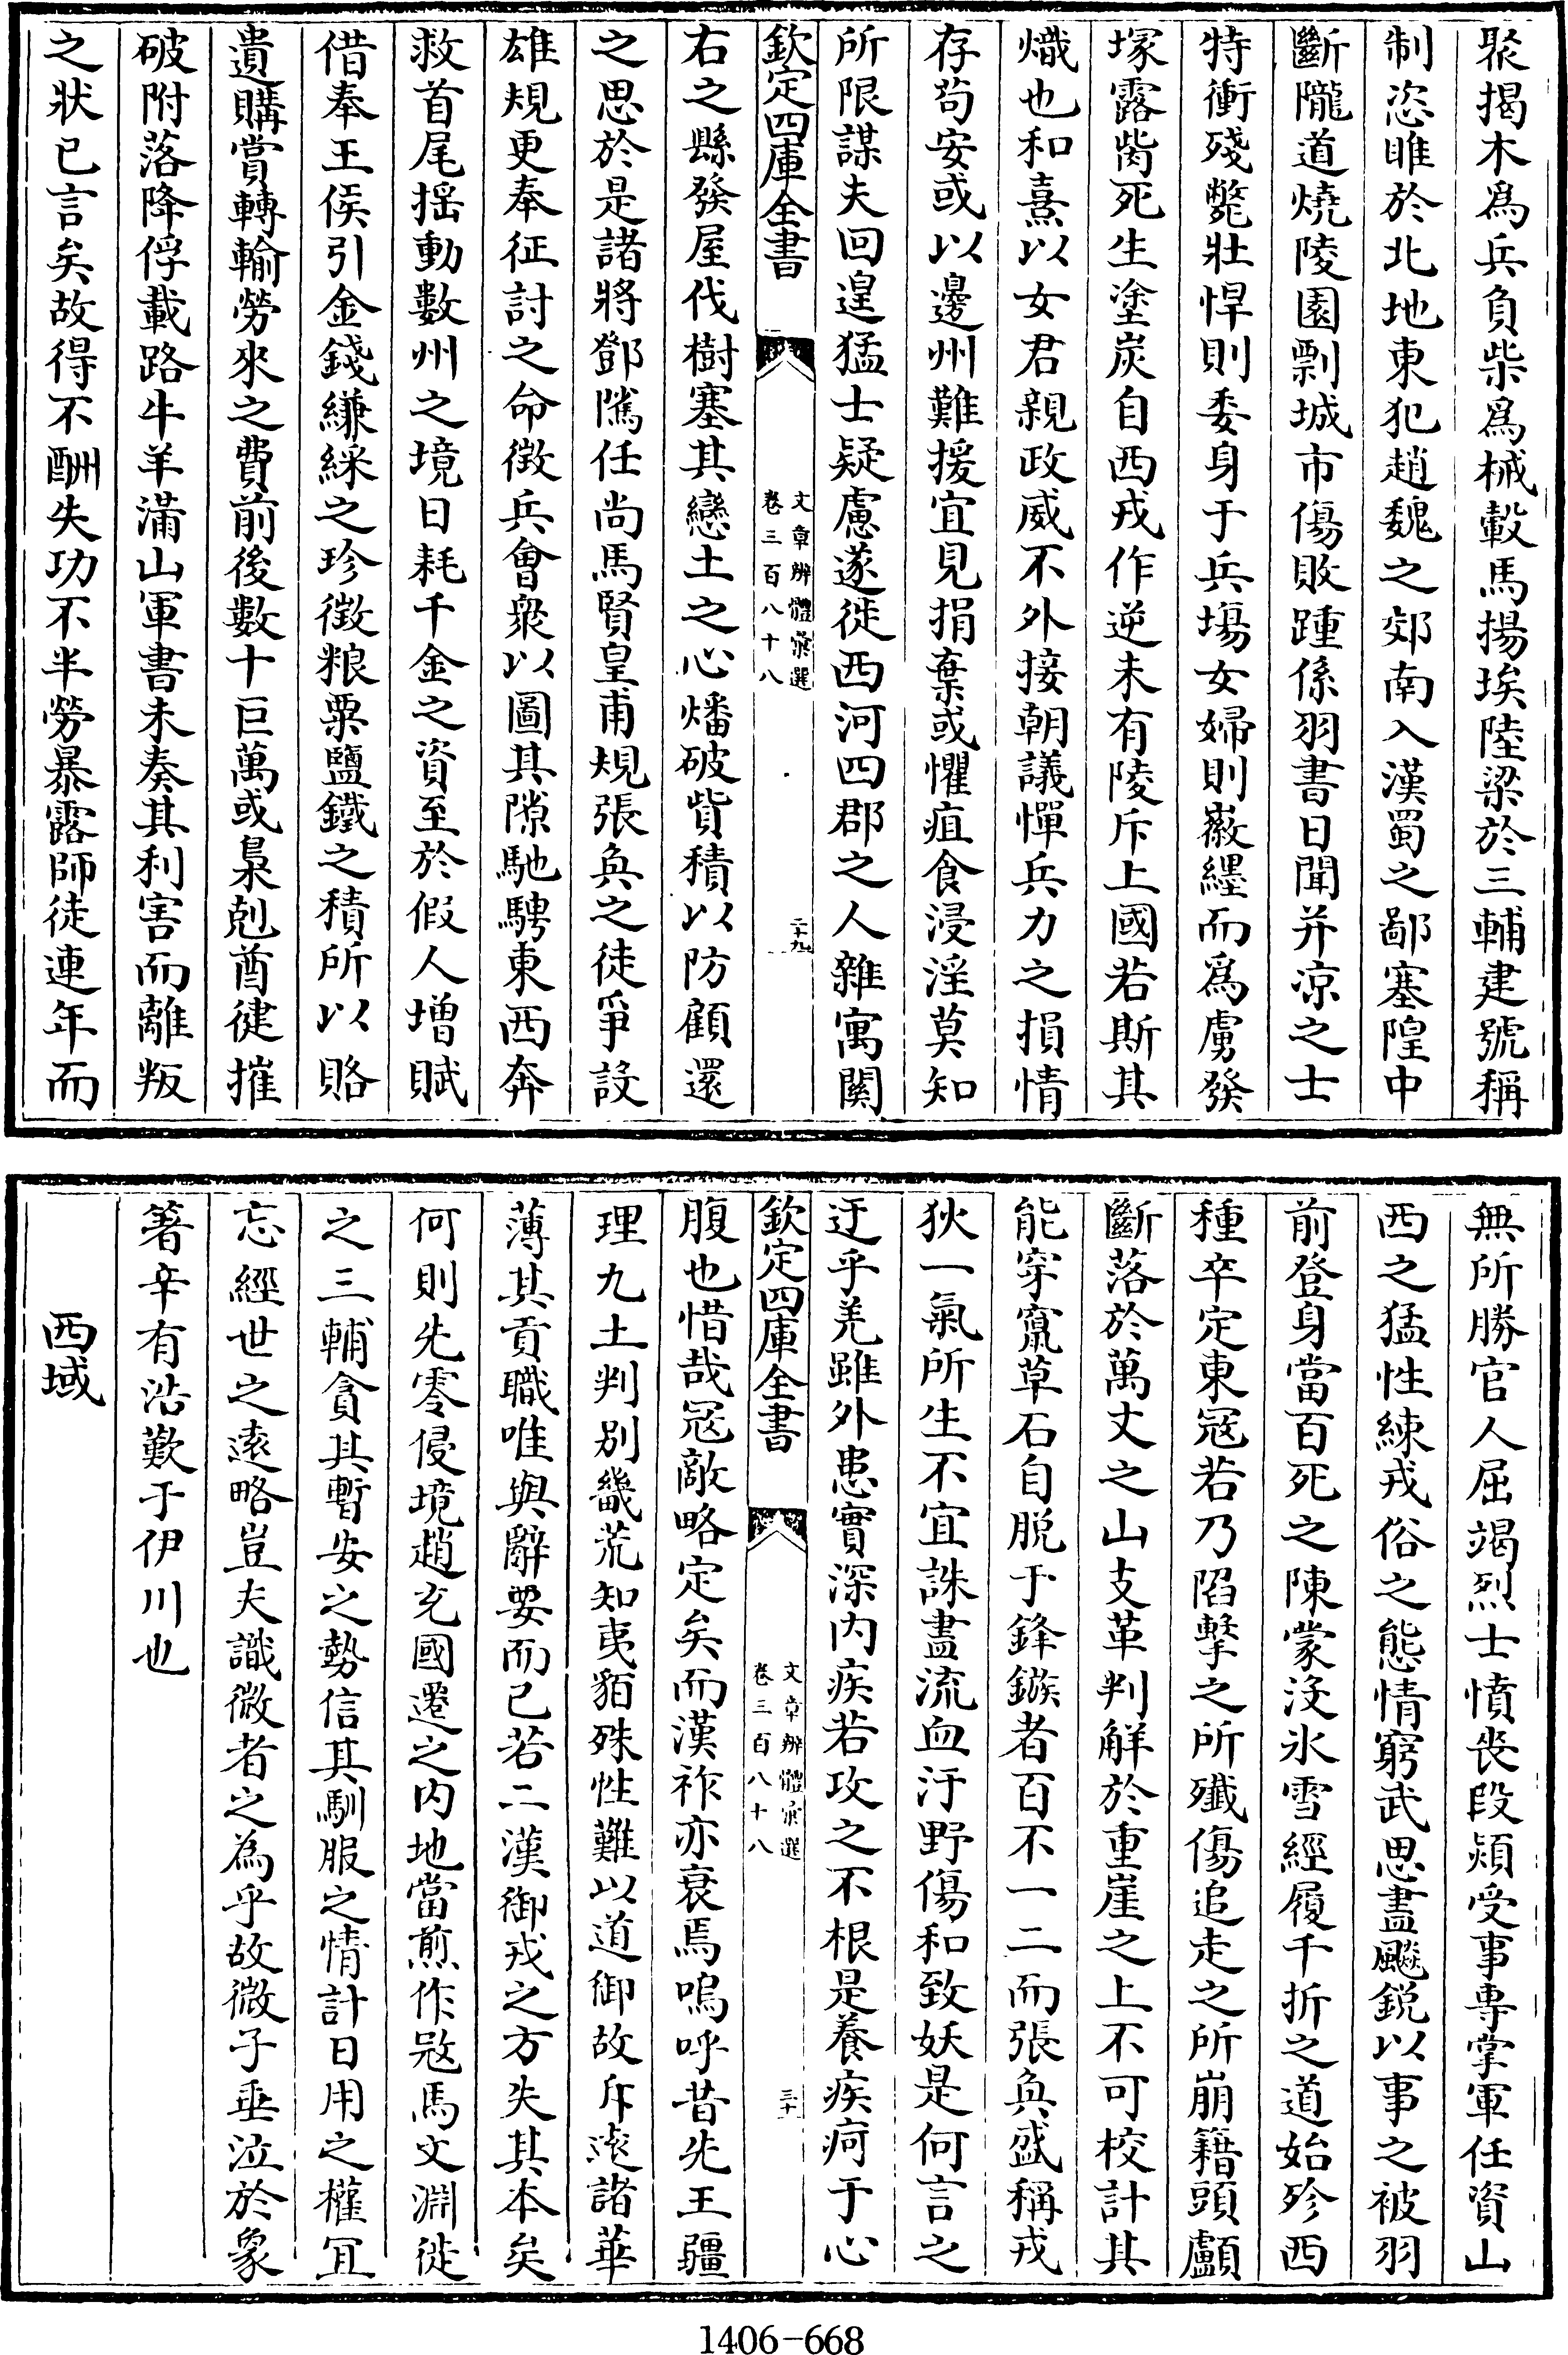 聚揭木爲兵負柴爲械轂馬揚埃陸梁於三輔建號稱
制恣睢於北地東犯趙魏之郊南入漢蜀之鄙塞隍中
斷隴道燒陵園剽城市傷敗踵係羽書日聞并凉之士
特衝殘斃壯悍則委身于兵塲女婦則徽纆而爲虜發
塚露胔死生塗炭自西戎作逆未有陵斥上國若斯其
熾也和熹以女君親政威不外接朝議憚兵力之損情
存苟安或以邊州難援宜見捐棄或懼疽食浸淫莫知
所限謀夫回遑猛士疑慮遂徙西河四郡之人雜寓關
欽定四庫全書
文章辨體彙選
卷三百八十八
二十九
右之縣發屋伐樹塞其戀土之心燔破貲積以防顧還
之思於是諸將鄧隲任尚馬賢皇甫規張奐之徒爭設
雄規更奉征討之命徴兵會衆以圖其隙馳騁東西奔
救首尾揺動數州之境日耗千金之資至於假人增賦
借奉王侯引金錢縑綵之珍徴粮粟鹽鐵之積所以賂
遺購賞轉輸勞來之費前後數十巨萬或梟剋酋健摧
破附落降俘載路牛羊滿山軍書未奏其利害而離叛
之狀已言矣故得不酬失功不半勞暴露師徒連年而
無所勝官人屈竭烈士憤喪段熲受事專掌軍任資山
西之猛性練戎俗之態情窮武思盡飈鋭以事之被羽
前登身當百死之陳蒙沒氷雪經履千折之道始殄西
種卒定東冦若乃陷擊之所殱傷追走之所崩籍頭顱
斷落於萬丈之山支革判解於重崖之上不可校計其
能穿竄草石自脱于鋒鏃者百不一二而張奐盛稱戎
狄一氣所生不宜誅盡流血汙野傷和致妖是何言之
迂乎羌雖外患實深内疾若攻之不根是養疾疴于心
欽定四庫全書
文章辨體彙選
卷三百八十八
三十
腹也惜哉冦敵略定矣而漢祚亦衰焉嗚呼昔先王疆
理九土判别畿荒知夷貊殊性難以道御故斥逺諸華
薄其貢職唯與辭要而已若二漢御戎之方失其本矣
何則先零侵境趙充國遷之内地當煎作冦馬文淵徙
之三輔貪其暫安之勢信其馴服之情計日用之權冝
忘經世之逺略豈夫識微者之為乎故微子垂泣於象
箸辛有浩歎于伊川也
西域
1406-668